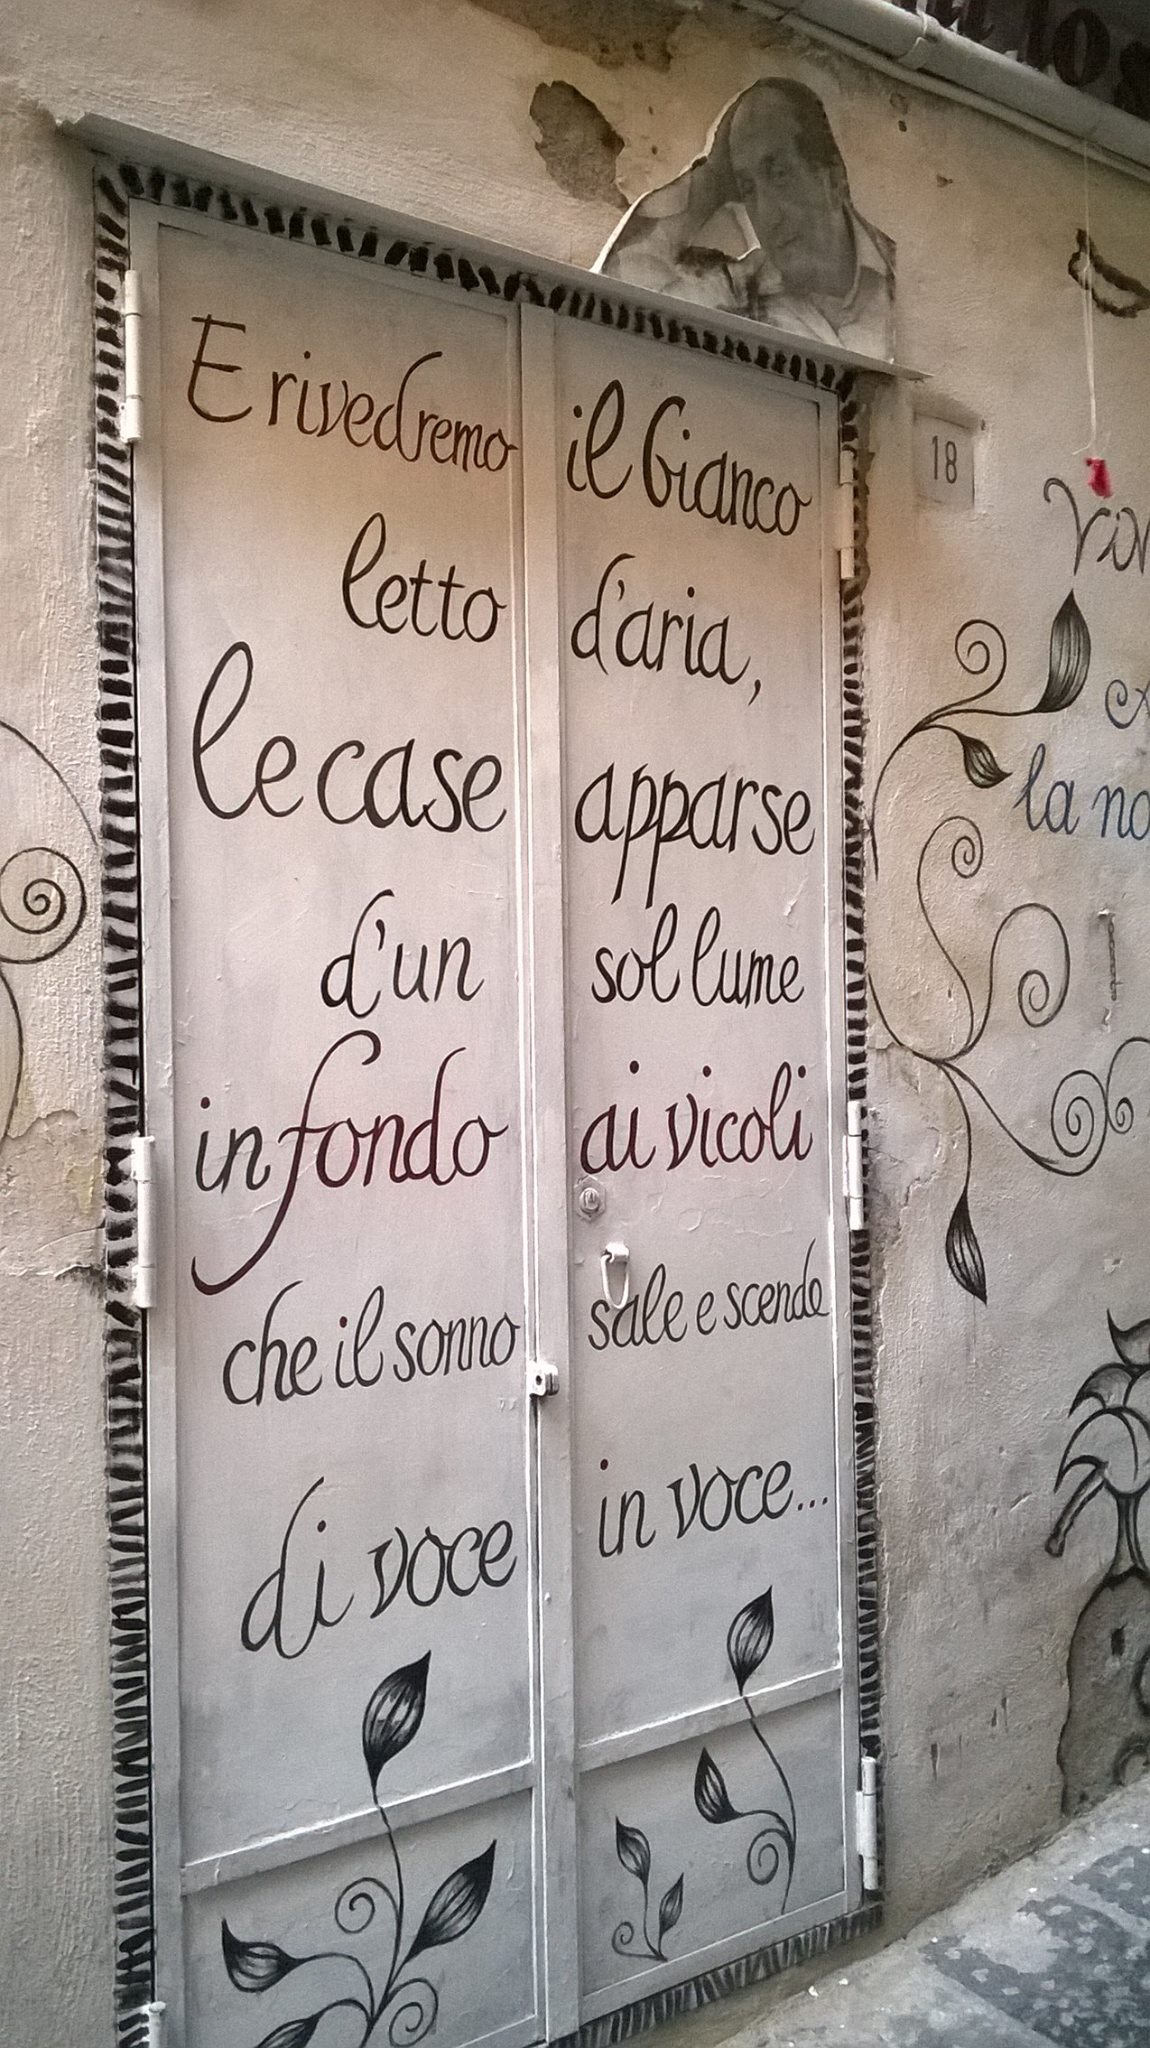 E rivedremo il bianco
letto d'aria,
le case apparse
d'un sol lume
in fondo ai vicoli
che il sonno sale e scende
di voce in voce...
18
la